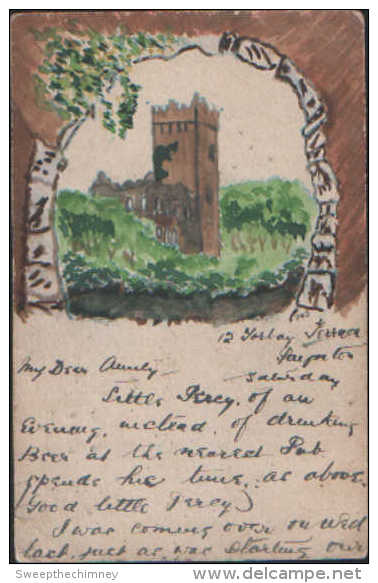 12 Torbay Terrace
Saturday
My Dear Aunty
Little Percy, of an
Evening, instead of drinking
Beer at the nearest Pub
spends his time, as above.
Good little Percy)
I was coming over on Wed
last, just as was starting our
© Sweepthechimney
http://www.delcampe.net